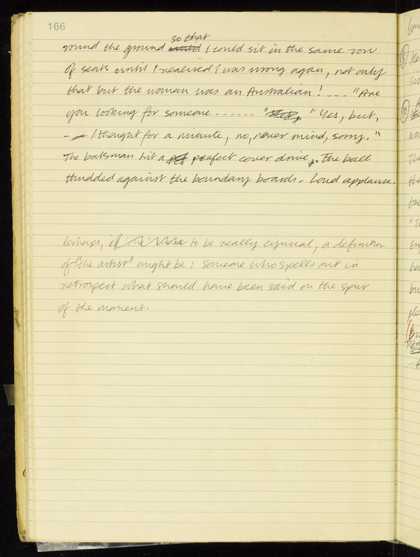 166
so that
round the ground I could sit in the same row
of seats until I realised I was wrong again, not only
that but the woman was an Australian! ... "Are
you looking for someone ...... " " Yes, but,
- I thought for a minute, no, never mind, sorry."
The batsman hit a perfect cover drive, the ball
thudded against the boundary boards. Loud applause.
Perhaps, if to be really cynical, a definition
of "the artist" might be: someone who spells out in
retrospect what should have been said on the spur
of the moment.